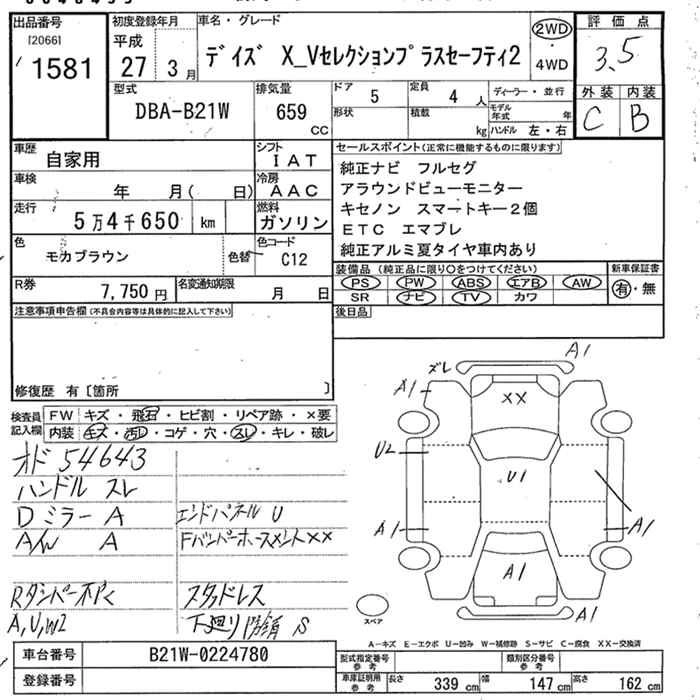 出品番号
[2066]
1581
初度登録年月
平成
27 3月
車名・グレード
デイズ X_Vセレクションプラスセーフティ2
2WD
・
4WD
評価点
3.5
外装 内装
C B
型式
DBA-B21W
排気量
659
cc
ドア
5
定員
4 人
ディーラー・並行
形状
積載
kg
モデル年式 年
ハンドル 左・右
車歴
自家用
シフト
IAT
車検
年 月( 日)
冷房
AAC
走行
5万4千650 km
燃料
ガソリン
色
モカブラウン
色替
色コード
C12
R券
7,750円
名変通知期限
月 日
セールスポイント(正常に機能するものに限ります)
純正ナビ フルセグ
アラウンドビューモニター
キセノン スマートキー2個
ETC エマブレ
純正アルミ夏タイヤ車内あり
装備品(純正品に限り○をつけてください)
PS PW ABS エアB AW
SR ナビ TV カワ
新車保証書
有・無
後日品
注意事項申告欄(不具合内容等は具体的に記入して下さい)
修復歴 有〔箇所 〕
検査員
記入欄
FW キズ・飛石・ヒビ割・リペア跡・×要
内装 キズ・汚レ・コゲ・穴・スレ・キレ・破レ
オド 54643
ハンドル スレ
Dミラー A
エンドパネル U
A/W A
Fバンパーホースメント××
スタッドレス
A,U,W2
下廻り防錆 S
ズレ
A1
A1
××
U2
U1
A1
A1
A1
A1
スペア
A-キズ E-エクボ U-凹み W-補修跡 S-サビ C-腐食 XX-交換済
車台番号
B21W-0224780
登録番号
型式指定番号
参考
類別区分番号
参考
車庫証明用
参考
長さ 339 cm
幅 147 cm
高さ 162 cm